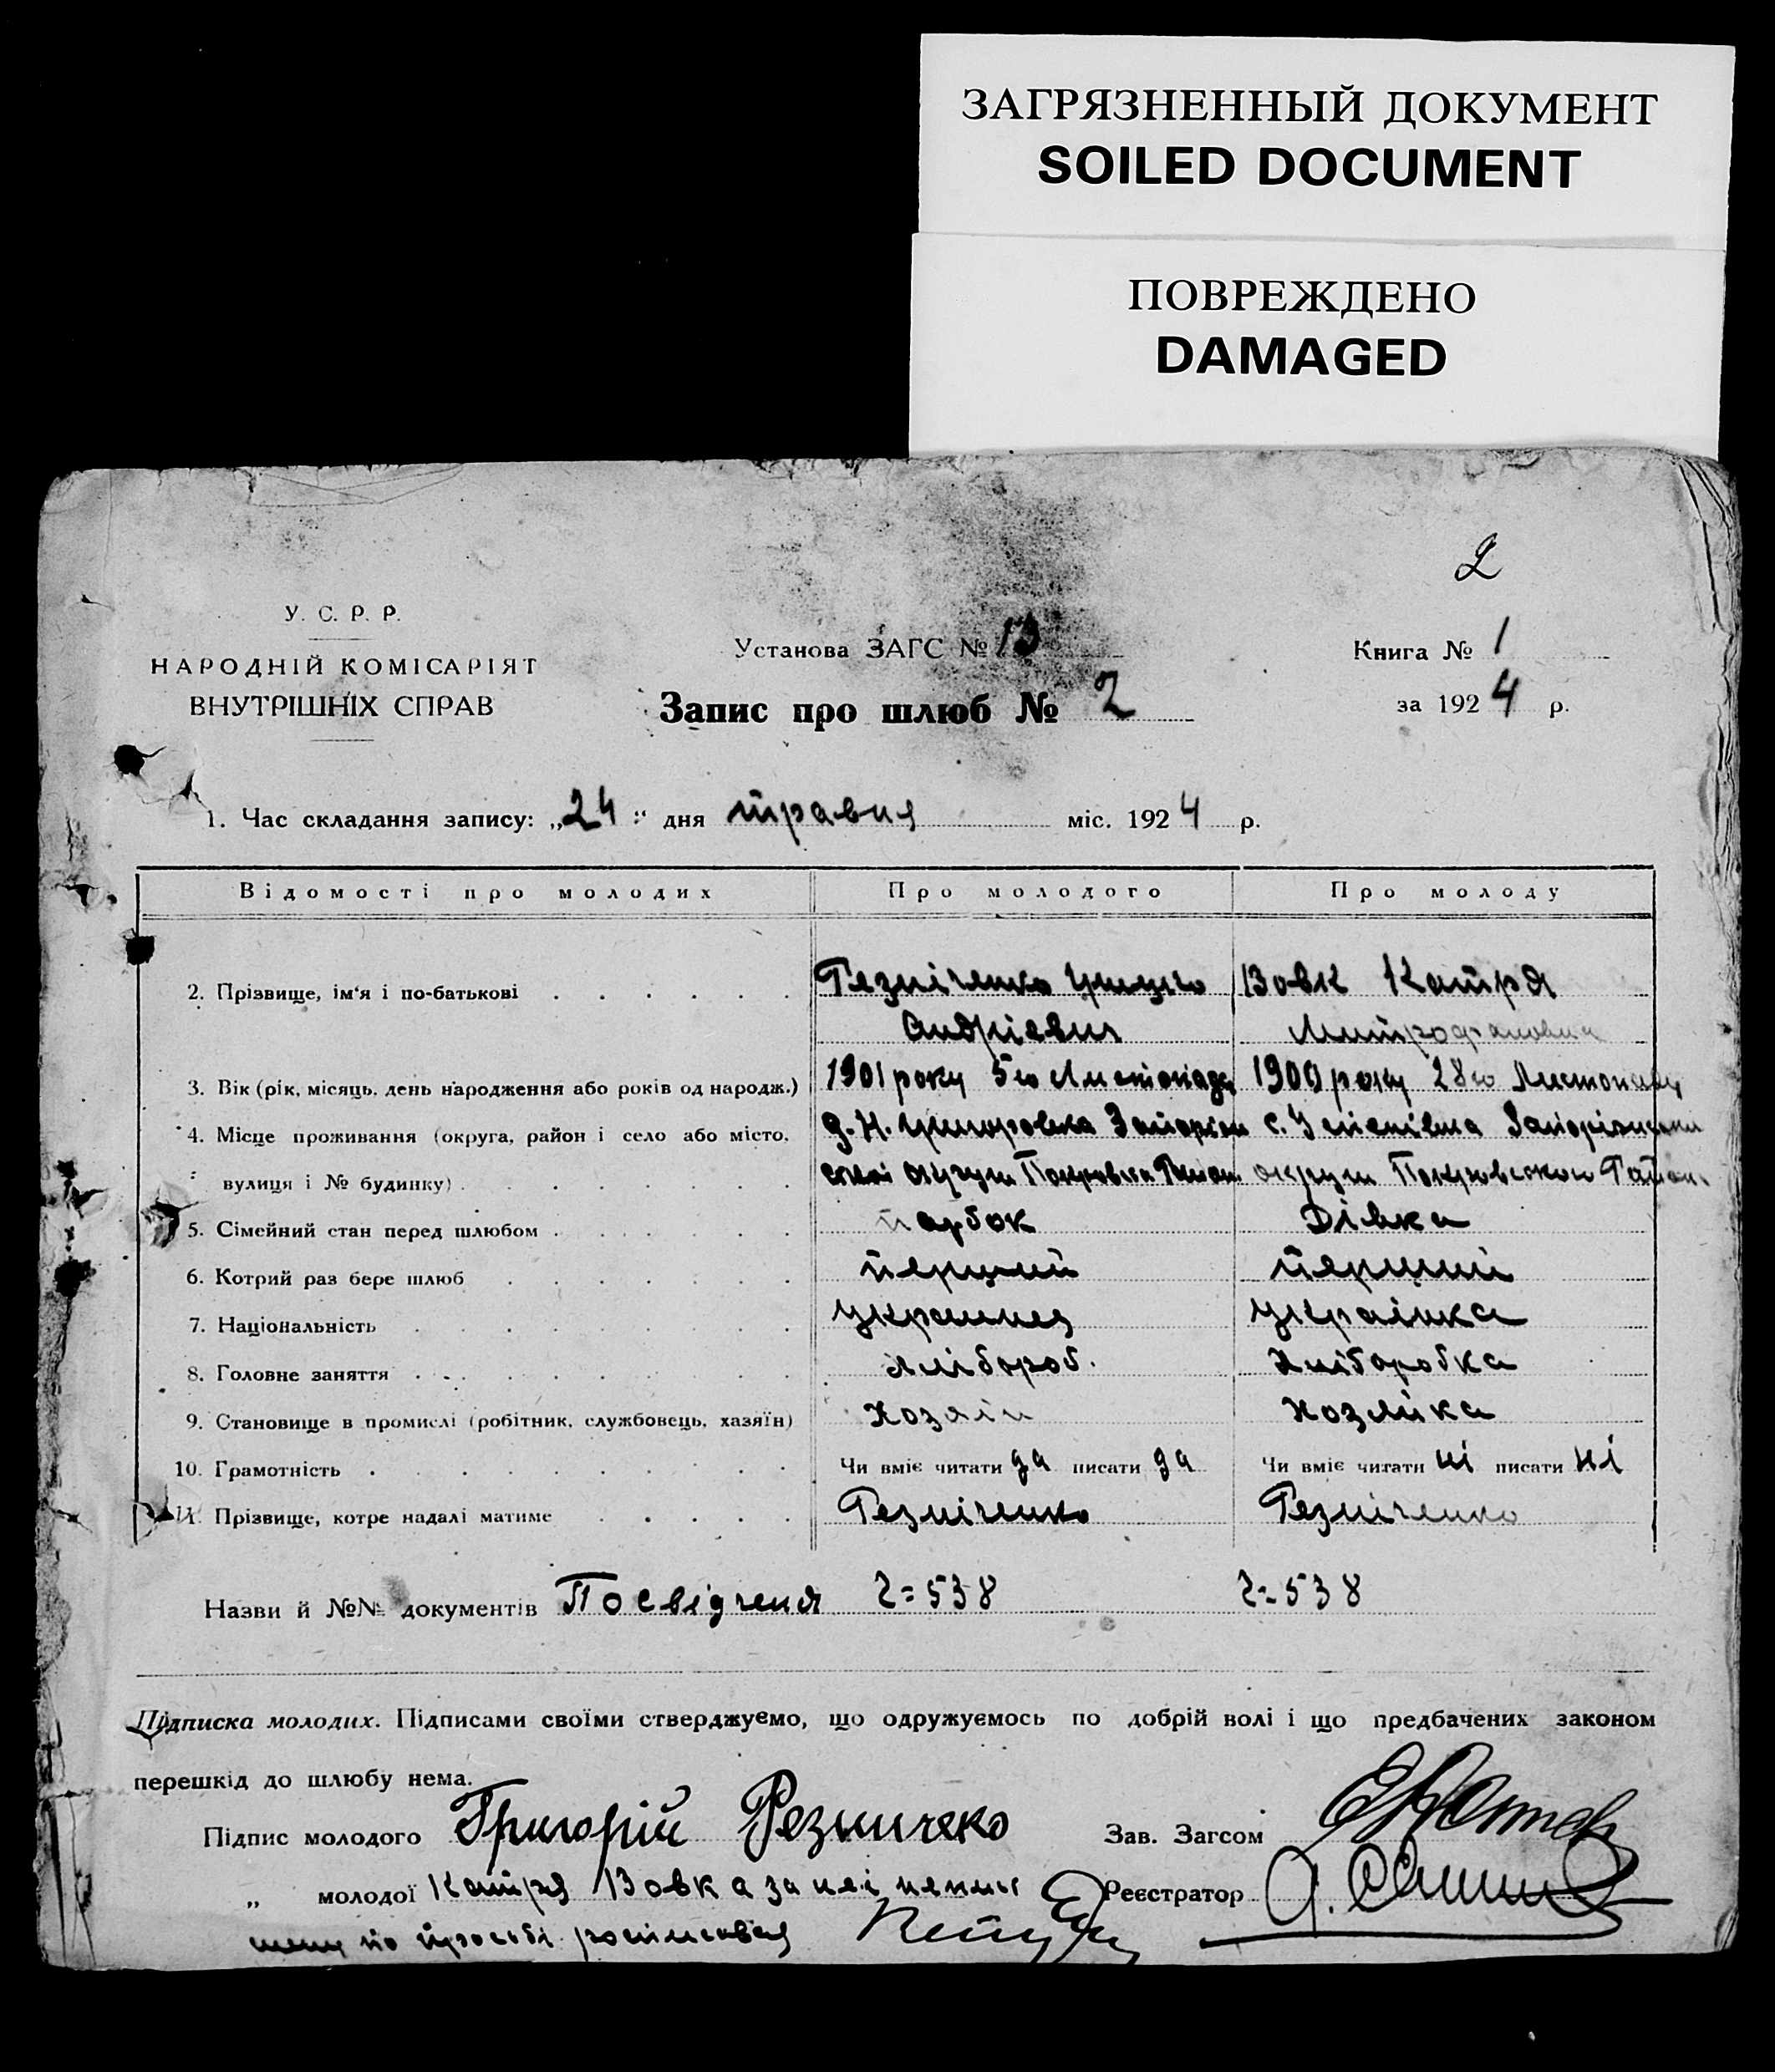 ЗАГРЯЗНЕННЫЙ ДОКУМЕНТ
SOILED DOCUMENT
ПОВРЕЖДЕНО
DAMAGED
2
У. С. Р. Р.
НАРОДНІЙ КОМІСАРІЯТ
ВНУТРІШНІХ СПРАВ
Установа ЗАГС № 13
Книга № 1
Запис про шлюб № 2
за 1924 р.
1. Час складання запису: „24" дня травня міс. 1924 р.
Відомості про молодих Про молодого Про молоду
2. Прізвище, ім'я і по-батькові Резніченко Вовк Катря
Андрієвич Митрофановна
3. Вік (рік, місяць, день народження або років од народж.) 1901 року 5го Листопада 1900 року 28го Листопаду
4. Місце проживання (округа, район і село або місто, с. Успенівка Запорізької
вулиця і № будинку) округи Покровського Район
5. Сімейний стан перед шлюбом парбок Дівка
6. Котрий раз бере шлюб перший перший
7. Національність Украинец Українка
8. Головне заняття Хлібороб. Хліборобка
9. Становище в промислі (робітник, службовець, хазяїн) Хозяін Хозяйка
10. Грамотність Чи вміє читати да писати да Чи вміє читати ні писати ні
11. Прізвище, котре надалі матиме Резніченко Резніченко
Назви й №№ документів Посвідченя 2=538 2=538
Підписка молодих. Підписами своїми стверджуємо, що одружуємось по добрій волі і що предбачених законом
перешкід до шлюбу нема.
Підпис молодого Григорій Резничеко Зав. Загсом
„ молодої Катря Вовк а за неї Реєстратор
по прозьбі росписався